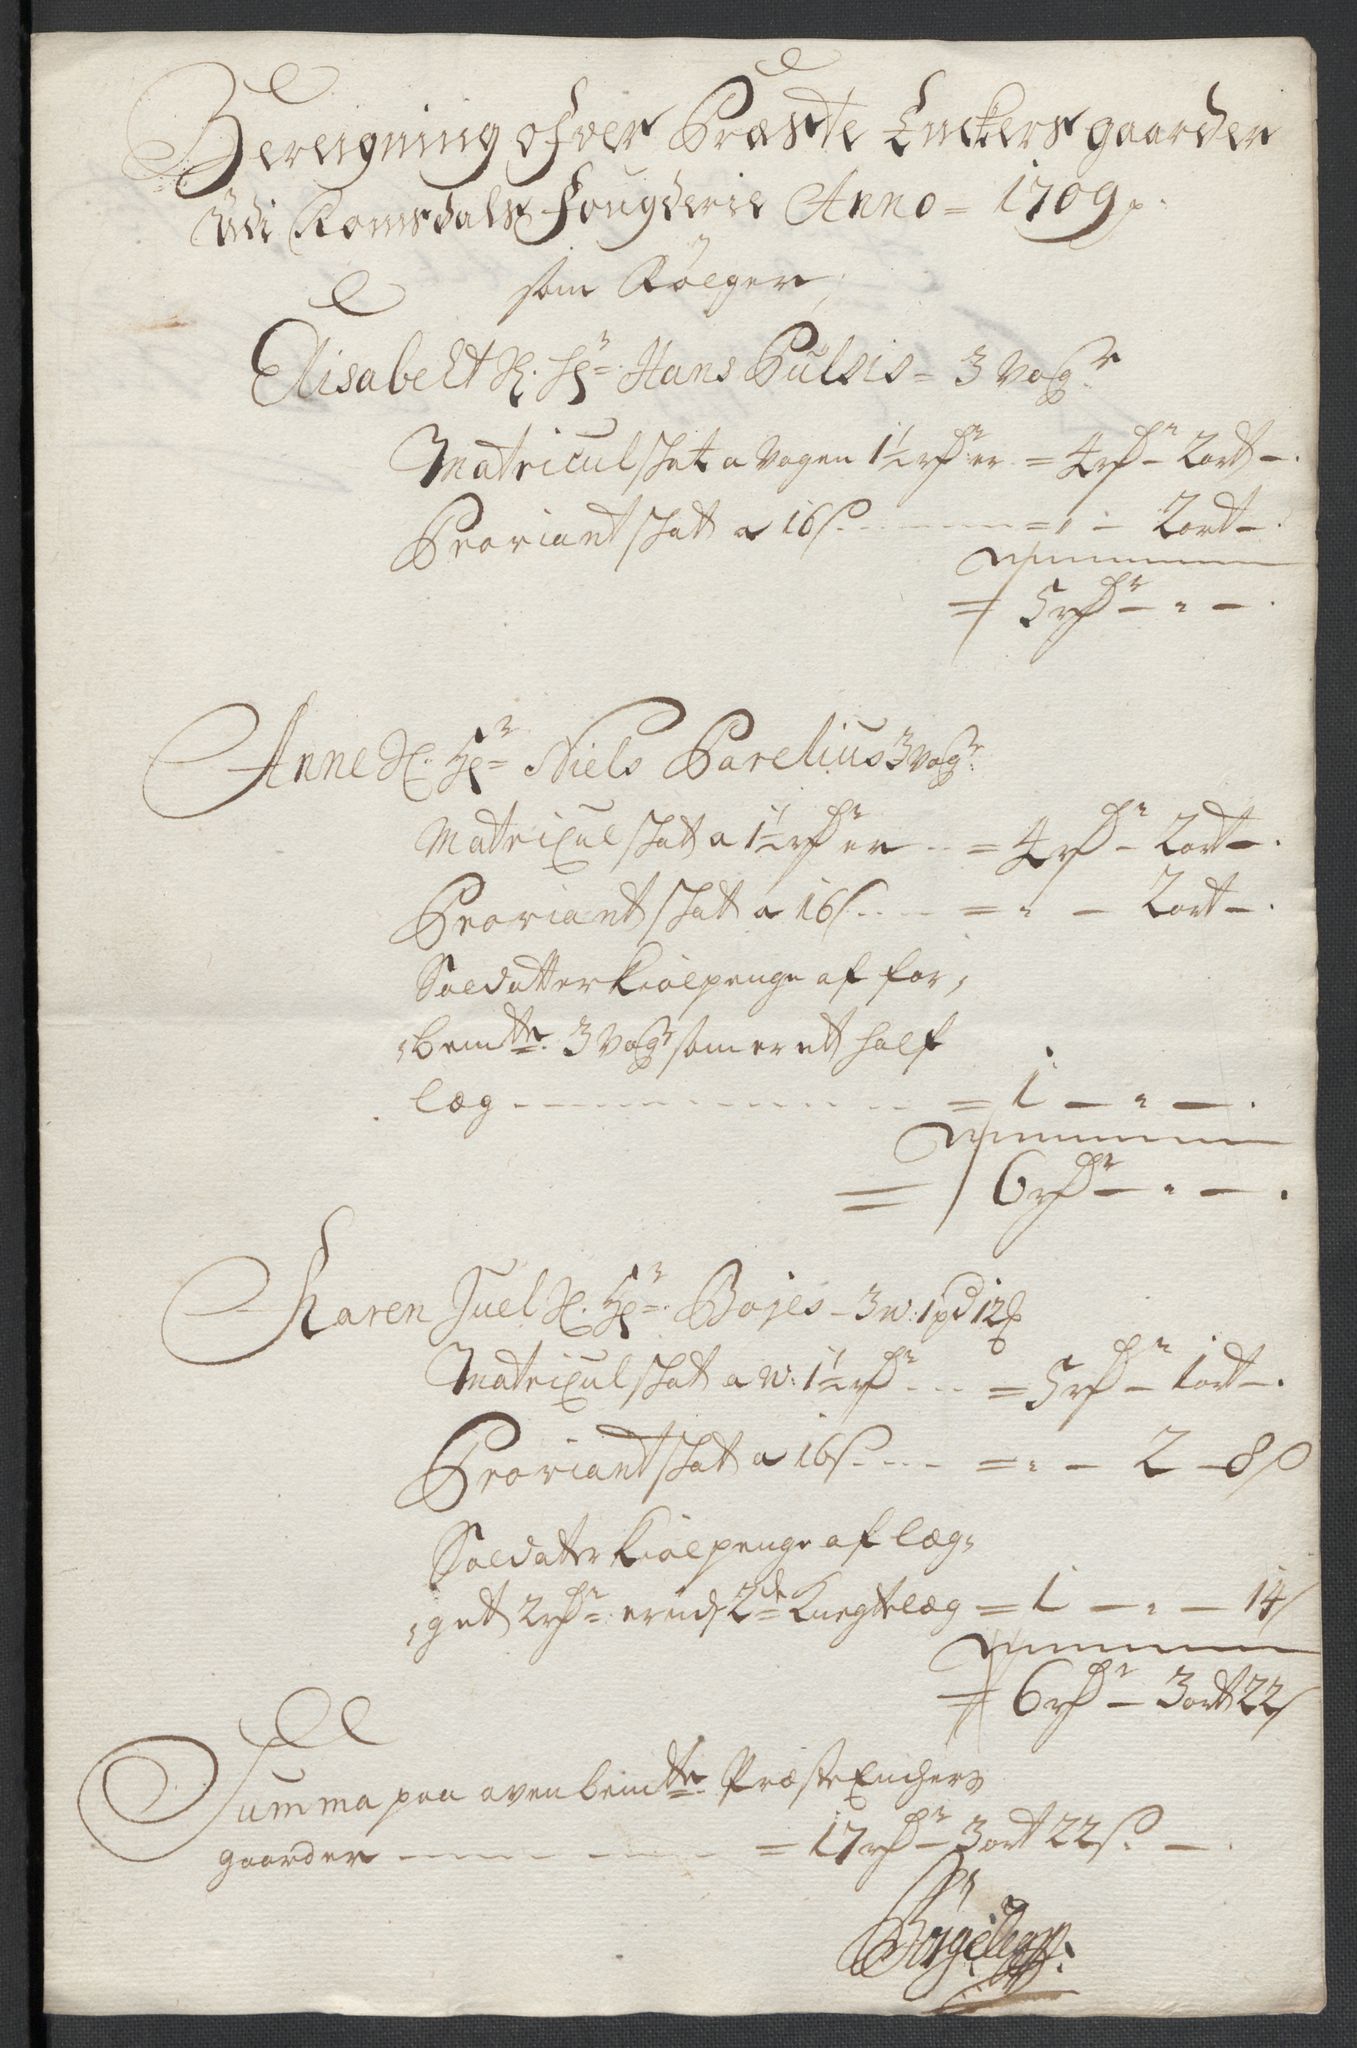 Beregning ofver Præste Enckers gaarder
Udi Romsdals Fougderie Anno = 1709
som Følger,
Elisabeht Sl. Hr: Hans Pulsis = 3 Vogr
Matricul skat a Vogen 1½ rdr er = 4 rdr - 2 ort -.
Proviant skat a 16 s = " - 2 ort -.
= 5 rdr - " -.
Anne Sl. Hr: Niels Parelius 3 vogr
Matricul skat a 1½ rdr er = 4 rdr - 2 ort -.
Proviant skat a 16 s = " - 2 ort -.
Soldatter kiolpenge af for,
,bemte: 3 vogr som er et half
læg = 1 - " -.
= 6 rdr - " -.
Karen Juel Sl. Hr: Bojes - 3 w: 1 pd 12
Matricul skat a w: 1½ rdr = 5 rdr - 1 ort -.
Proviant skat a 16 s = " - 2 - 8 s
Soldater kiolpenge af læg,
,get 2 rdr: er 2de Knegtelæg = 1 - " - 14 s
= 6 rdr - 3 ort 22 s
Summa paa ovenbemte Præste Enchers
gaarder = 17 rdr - 3 ort 22 s -.